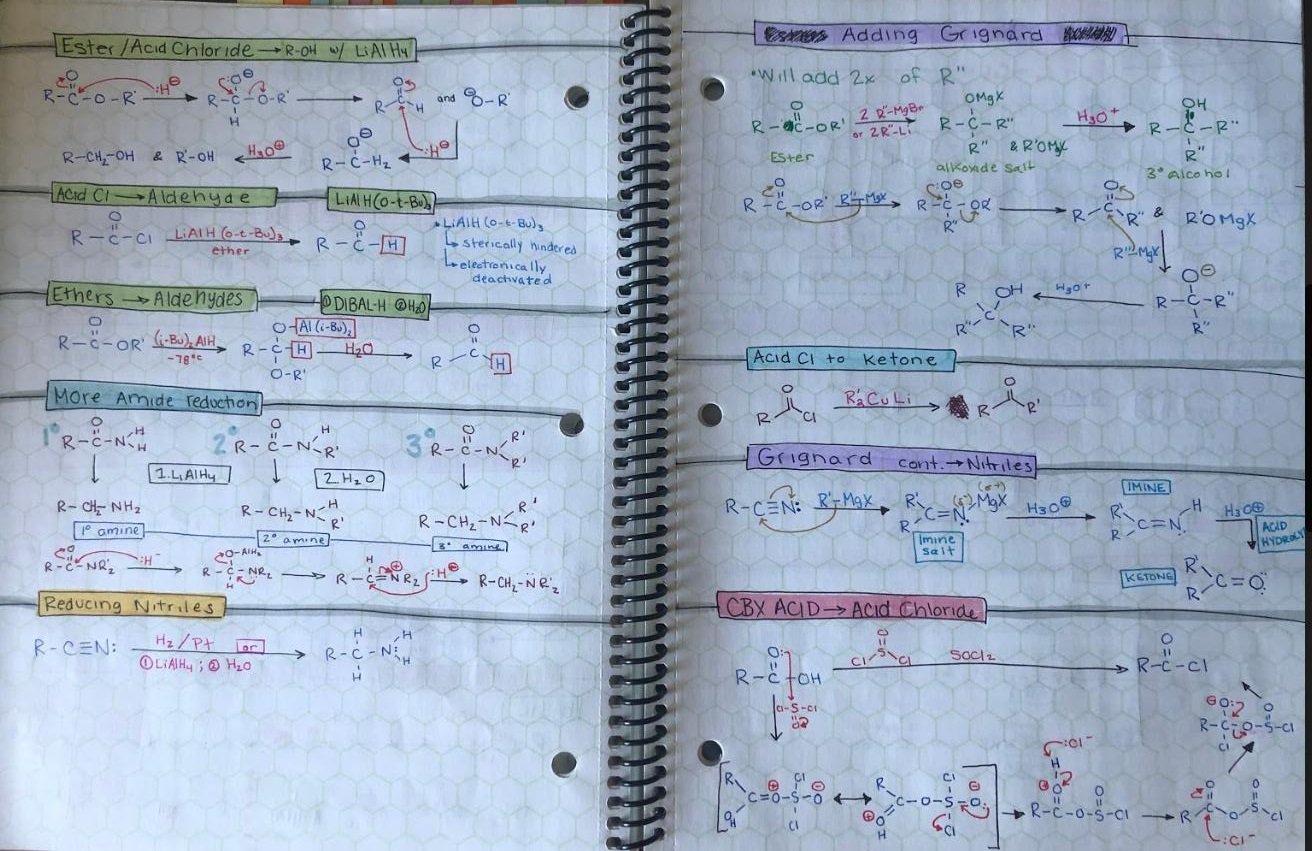 Ester/Acid Chloride → R-OH w/ LiAlH4
R-C-O-R' :H⊖ → R-C-O-R' → R-C-H and ⊖O-R'
R-CH2-OH & R'-OH ← H3O⊕ R-C-H2 ← :H⊖
Acid Cl → Aldehyde LiAlH(o-t-Bu)3
R-C-Cl LiAlH(o-t-Bu)3 ether → R-C-H
• LiAlH(o-t-Bu)3
↳ sterically hindered
↳ electronically deactivated
Ethers → Aldehydes ① DIBAL-H ② H2O
R-C-OR' (i-Bu)2AlH -78°C → O-Al(i-Bu)2 R-C-H O-R' H2O → R-C-H
More Amide reduction
1° R-C-N-H H 2° R-C-N-H R' 3° R-C-N-R' R'
1. LiAlH4 2. H2O
R-CH2-NH2 R-CH2-N-H R' R-CH2-N-R' R'
1° amine 2° amine 3° amine
R-C-NR'2 :H⁻ → O-AlH3 R-C-NR2 H → H R-C=NR2 ⊕ :H⊖ → R-CH2-N̈R'2
Reducing Nitriles
R-C≡N: H2/Pt or ① LiAlH4; ② H2O → R-C-N: H H H H
Adding Grignard
• Will add 2x of R"
R-C-OR' 2 R"-MgBr or 2R"-Li → OMgX R-C-R" R" & R'OMgX H3O⁺ → OH R-C-R" R"
Ester alkoxide salt 3° alcohol
R-C-OR' R"-MgX → R-C-OR' R" → R-C-R" & R'OMgX
R"-MgX
R OH C R" R" ← H3O+ O⊖ R-C-R" R"
Acid Cl to Ketone
R Cl R'2CuLi → R R'
Grignard cont. → Nitriles
R-C≡N: R'-MgX → R' R C=N (δ-) MgX (δ+) H3O⊕ → R' R C=N H H3O⊕
Imine salt
IMINE
ACID
KETONE R' R C=O
CBX ACID → Acid Chloride
R-C-OH Cl S Cl SOCl2 → R-C-Cl
Cl-S-Cl
[R OH C=O-S-O Cl Cl ↔ R C-O-S=O O H Cl Cl] → R-C-O-S-Cl :Cl⁻ → R C O S Cl :Cl⁻
R-C-O-S-Cl Cl